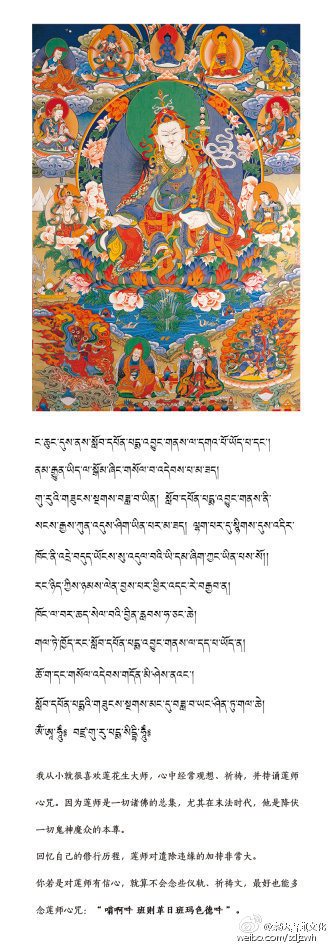 ང་ཆུང་དུས་ནས་སློབ་དཔོན་པདྨ་འབྱུང་གནས་ལ་དགའ་པོ་ཡོད་པ་དང་།
ནམ་རྒྱུན་ཡིད་ལ་སྒོམ་ཞིང་གསོལ་བ་འདེབས་པ་མ་ཟད།
གུ་རུའི་གཟུངས་སྔགས་བཟླ་བ་ཡིན། སློབ་དཔོན་པདྨ་འབྱུང་གནས་ནི་
སངས་རྒྱས་ཀུན་འདུས་ཤིག་ཡིན་པར་མ་ཟད། ལྷག་པར་དུ་སྙིགས་དུས་འདིར་
ཁོང་ནི་འདྲེ་བདུད་ཡོངས་སུ་འདུལ་བའི་ཡི་དམ་ཞིག་ཀྱང་ཡིན་པས་སོ།།
རང་ཉིད་ཀྱིས་ཉམས་ལེན་བྱས་པར་ཕྱིར་འདང་རེ་བརྒྱབ་ན།
ཁོང་ལ་བར་ཆད་སེལ་བའི་བྱིན་རླབས་ཧ་ཅང་ཆེ།
གལ་ཏེ་ཁྱོད་རང་སློབ་དཔོན་པདྨ་འབྱུང་གནས་ལ་དད་པ་ཡོད་ན།
ཆོ་ག་དང་གསོལ་འདེབས་གདོན་མི་ཤེས་ནའང་།
སློབ་དཔོན་པདྨའི་གཟུངས་སྔགས་མང་དུ་བཟླ་བ་ཡང་ཤིན་ཏུ་གལ་ཆེ།
ཨོཾ་ཨཱཿ་ཧཱུྃ༔ བཛྲ་གུ་རུ་པདྨ་སིདྡྷི་ཧཱུྃ༔
我从小就很喜欢莲花生大师，心中经常观想、祈祷，并持诵莲师
心咒。因为莲师是一切诸佛的总集，尤其在末法时代，他是降伏
一切鬼神魔众的本尊。
回忆自己的修行历程，莲师对遣除违缘的加持非常大。
你若是对莲师有信心，就算不会念些仪轨、祈祷文，最好也能多
念莲师心咒：“嗡啊吽 班则革日班玛色德吽”。
weibo.com/zdjzwh